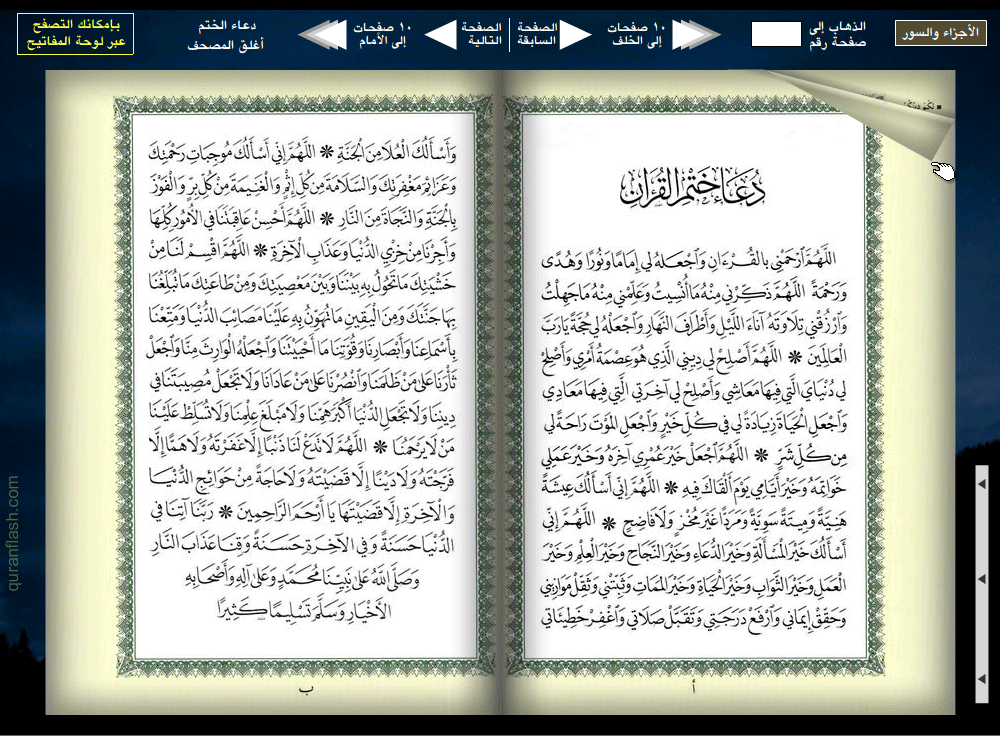 الأجزاء والسور
الذهاب إلى
صفحة رقم
١٠ صفحات
إلى الخلف
الصفحة
السابقة
الصفحة
التالية
١٠ صفحات
إلى الأمام
دعاء الختم
أغلق المصحف
بإمكانك التصفح
عبر لوحة المفاتيح
دُعَاءُ خَتْمِ الْقُرْآنِ
اللَّهُمَّ ٱرْحَمْنِي بِالقُرْءَانِ وَٱجْعَلهُ لِي إِمَامًا وَنُورًا وَهُدًى
وَرَحْمَةً اللَّهُمَّ ذَكِّرْنِي مِنْهُ مَا نُسِّيتُ وَعَلِّمْنِي مِنْهُ مَا جَهِلْتُ
وَٱرْزُقْنِي تِلَاوَتَهُ آنَاءَ اللَّيْلِ وَأَطْرَافَ النَّهَارِ وَٱجْعَلْهُ لِي حُجَّةً يَا رَبَّ
العَالَمِينَ ❋ اللَّهُمَّ أَصْلِحْ لِي دِينِي الَّذِي هُوَ عِصْمَةُ أَمْرِي وَأَصْلِحْ
لِي دُنْيَايَ الَّتِي فِيهَا مَعَاشِي وَأَصْلِحْ لِي آخِرَتِي الَّتِي فِيهَا مَعَادِي
وَٱجْعَلِ الْحَيَاةَ زِيَادَةً لِي فِي كُلِّ خَيْرٍ وَٱجْعَلِ المَوْتَ رَاحَةً لِي
مِن كُلِّ شَرٍّ ❋ اللَّهُمَّ ٱجْعَلْ خَيْرَ عُمْرِي آخِرَهُ وَخَيْرَ عَمَلِي
خَوَاتِمَهُ وَخَيْرَ أَيَّامِي يَوْمَ أَلْقَاكَ فِيهِ ❋ اللَّهُمَّ إِنِّي أَسْأَلُكَ عِيشَةً
هَنِيَّةً وَمِيتَةً سَوِيَّةً وَمَرَدًّا غَيْرَ مُخْزٍ وَلَا فَاضِحٍ ❋ اللَّهُمَّ إِنِّي
أَسْأَلُكَ خَيْرَ المَسْأَلَةِ وَخَيْرَ الدُّعَاءِ وَخَيْرَ النَّجَاحِ وَخَيْرَ العِلْمِ وَخَيْرَ
العَمَلِ وَخَيْرَ الثَّوَابِ وَخَيْرَ الْحَيَاةِ وَخَيْرَ المَمَاتِ وَثَبِّتْنِي وَثَقِّلْ مَوَازِينِي
وَحَقِّقْ إِيمَانِي وَٱرْفَعْ دَرَجَتِي وَتَقَبَّلْ صَلَاتِي وَٱغْفِرْ خَطِيئَاتِي
أ
وَأَسْأَلُكَ الْعُلَا مِنَ الْجَنَّةِ ❋ اللَّهُمَّ إِنِّي أَسْأَلُكَ مُوجِبَاتِ رَحْمَتِكَ
وَعَزَائِمِ مَغْفِرَتِكَ وَالسَّلَامَةَ مِن كُلِّ إِثْمٍ وَالْغَنِيمَةَ مِنْ كُلِّ بِرٍّ وَالْفَوْزَ
بِالْجَنَّةِ وَالنَّجَاةَ مِنَ النَّارِ ❋ اللَّهُمَّ أَحْسِنْ عَاقِبَتَنَا فِي الأُمُورِ كُلِّهَا
وَأَجِرْنَا مِنْ خِزْيِ الدُّنْيَا وَعَذَابِ الْآخِرَةِ ❋ اللَّهُمَّ اقْسِمْ لَنَا مِنْ
خَشْيَتِكَ مَا تَحُولُ بِهِ بَيْنَنَا وَبَيْنَ مَعْصِيَتِكَ وَمِنْ طَاعَتِكَ مَا تُبَلِّغُنَا
بِهَا جَنَّتَكَ وَمِنَ الْيَقِينِ مَا تُهَوِّنُ بِهِ عَلَيْنَا مَصَائِبَ الدُّنْيَا وَمَتِّعْنَا
بِأَسْمَاعِنَا وَأَبْصَارِنَا وَقُوَّتِنَا مَا أَحْيَيْتَنَا وَاجْعَلْهُ الْوَارِثَ مِنَّا وَاجْعَلْ
ثَأْرَنَا عَلَى مَنْ ظَلَمَنَا وَانْصُرْنَا عَلَى مَنْ عَادَانَا وَلَا تَجْعَلْ مُصِيبَتَنَا فِي
دِينِنَا وَلَا تَجْعَلِ الدُّنْيَا أَكْبَرَ هَمِّنَا وَلَا مَبْلَغَ عِلْمِنَا وَلَا تُسَلِّطْ عَلَيْنَا
مَنْ لَا يَرْحَمُنَا ❋ اللَّهُمَّ لَا تَدَعْ لَنَا ذَنْبًا إِلَّا غَفَرْتَهُ وَلَا هَمًّا إِلَّا
فَرَّجْتَهُ وَلَا دَيْنًا إِلَّا قَضَيْتَهُ وَلَا حَاجَةً مِنْ حَوَائِجِ الدُّنْيَا
وَالْآخِرَةِ إِلَّا قَضَيْتَهَا يَا أَرْحَمَ الرَّاحِمِينَ ❋ رَبَّنَا آتِنَا فِي
الدُّنْيَا حَسَنَةً وَفِي الآخِرَةِ حَسَنَةً وَقِنَا عَذَابَ النَّارِ
وَصَلَّى اللَّهُ عَلَى نَبِيِّنَا مُحَمَّدٍ وَعَلَى آلِهِ وَأَصْحَابِهِ
الأَخْيَارِ وَسَلَّمَ تَسْلِيمًا كَثِيرًا
ب
quranflash.com